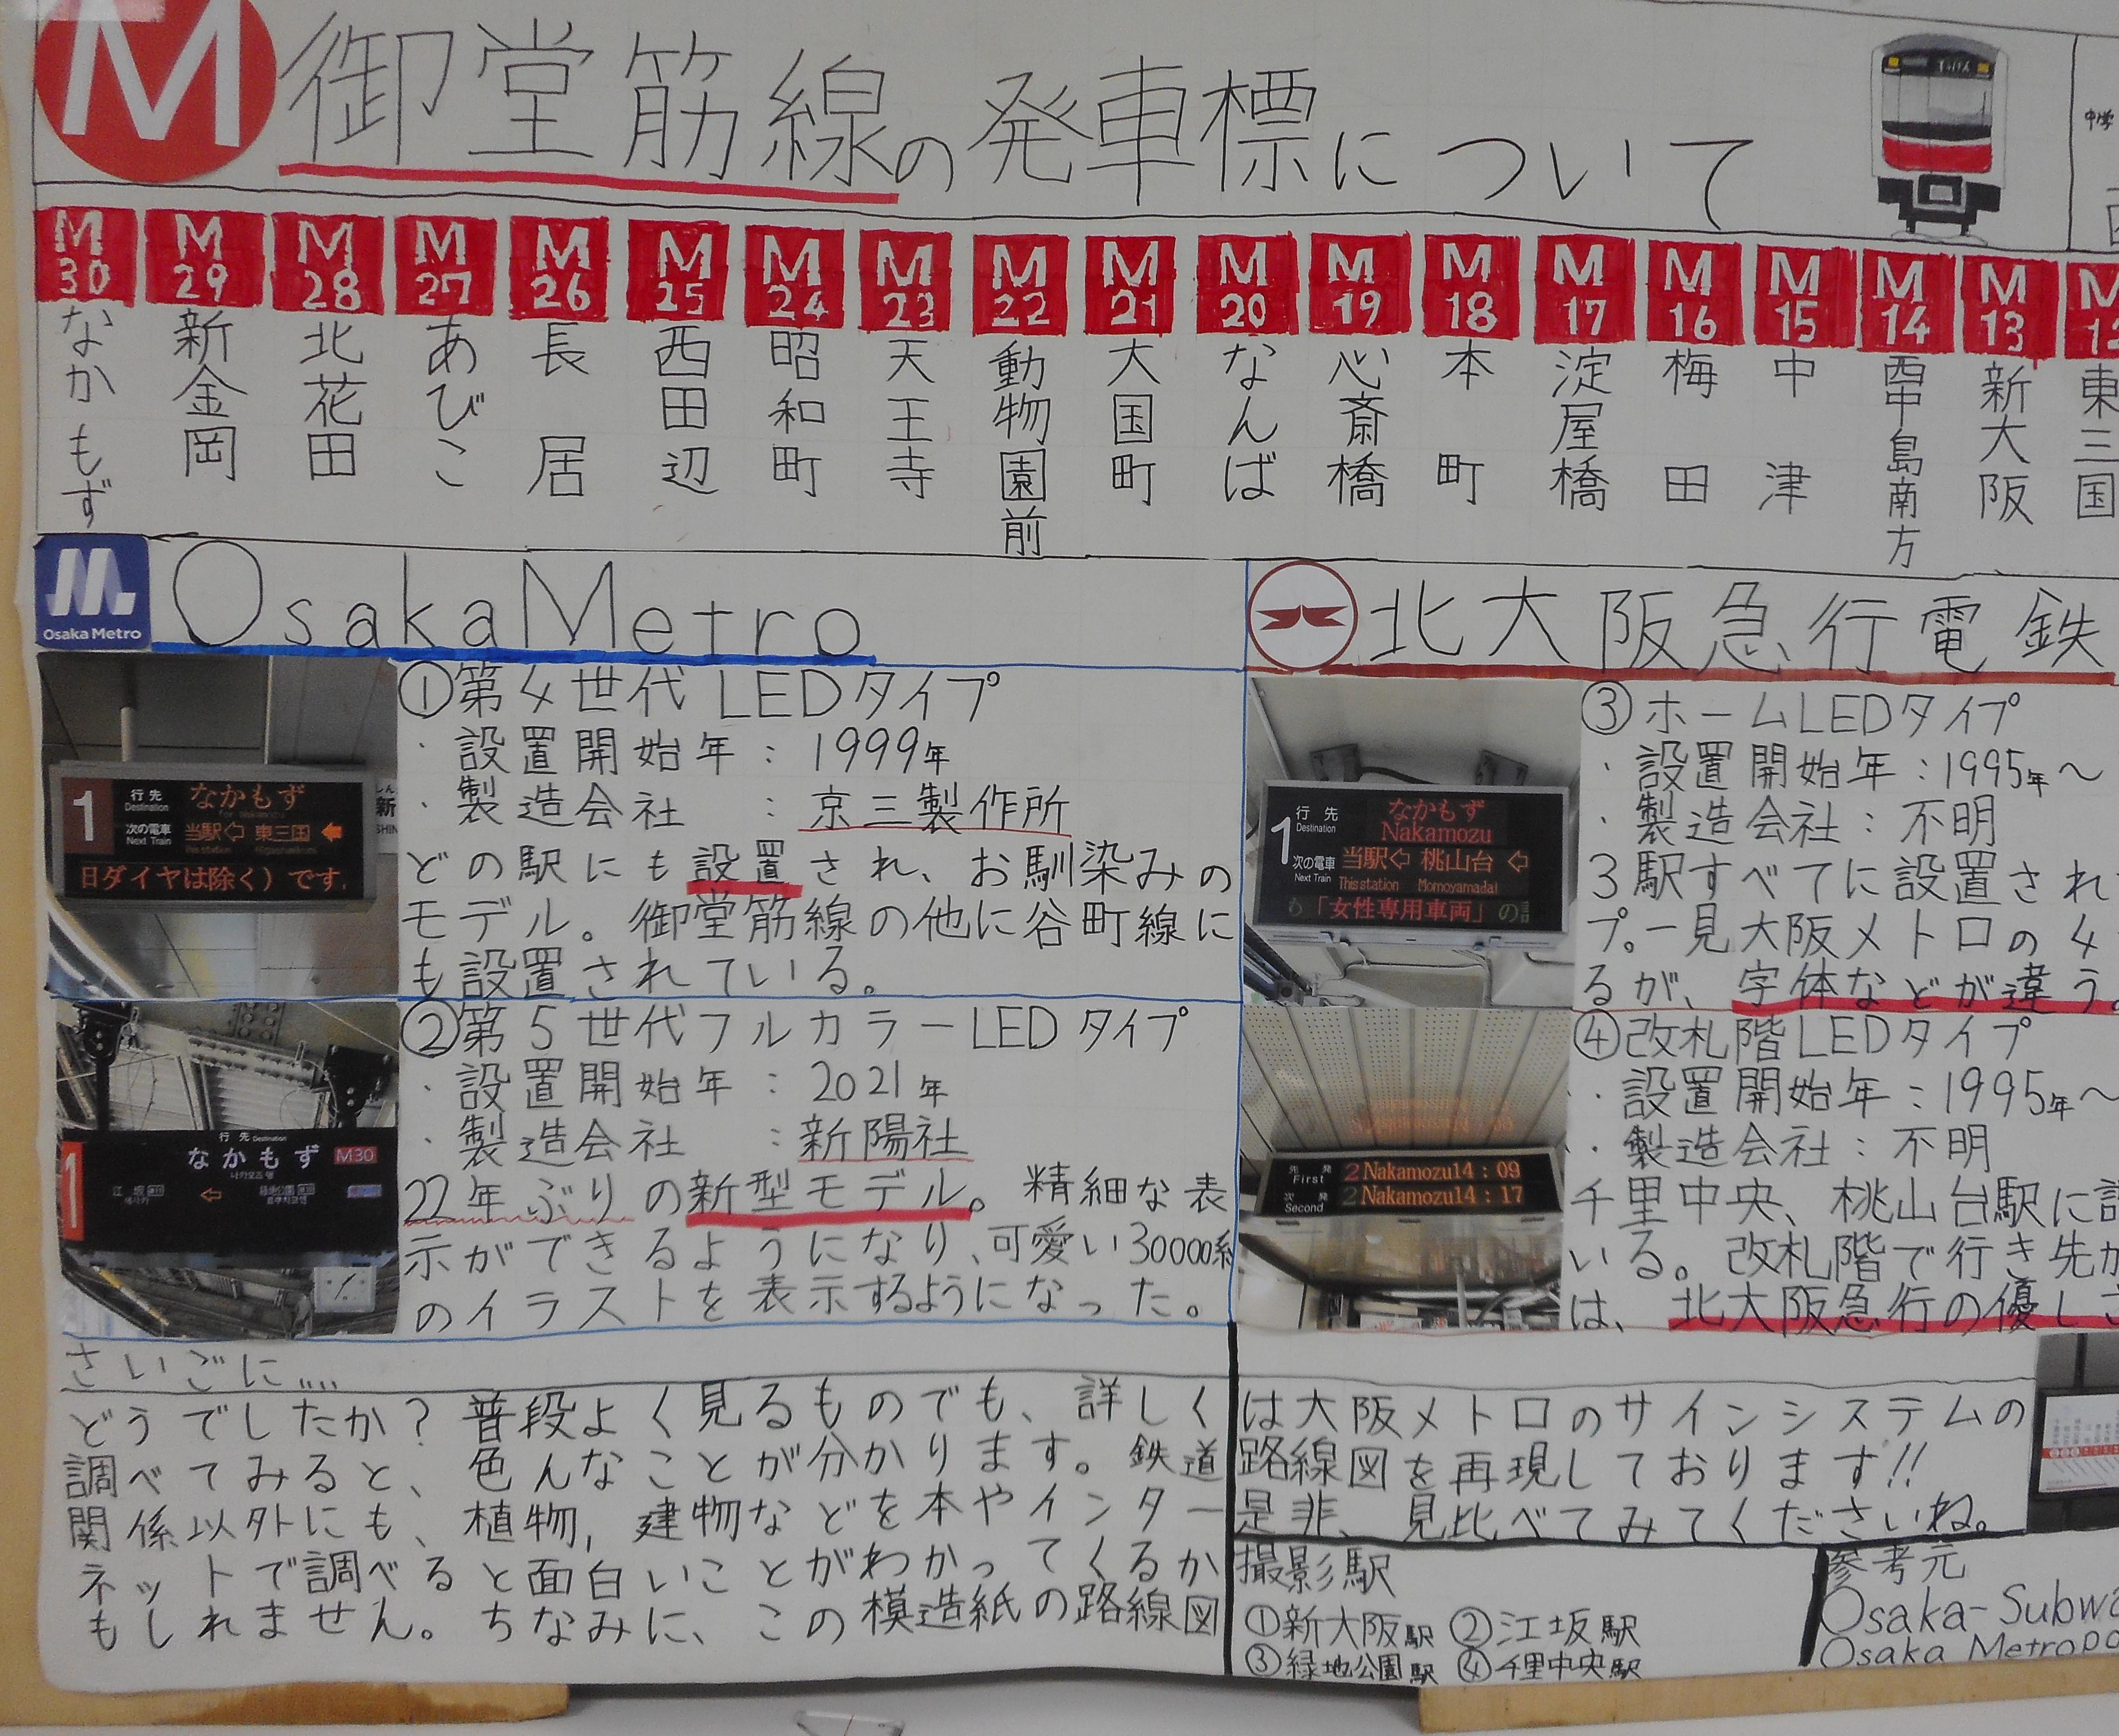 M 御堂筋線の発車標について
中学
M30 なかもず
M29 新金岡
M28 北花田
M27 あびこ
M26 長居
M25 西田辺
M24 昭和町
M23 天王寺
M22 動物園前
M21 大国町
M20 なんば
M19 心斎橋
M18 本町
M17 淀屋橋
M16 梅田
M15 中津
M14 西中島南方
M13 新大阪
東三国
Osaka Metro
OsakaMetro
1 行先 Destination なかもず
次の電車 Next Train 当駅⇦ 東三国
日ダイヤは除く）です。
①第4世代 LEDタイプ
・設置開始年：1999年
・製造会社：京三製作所
どの駅にも設置され、お馴染みの
モデル。御堂筋線の他に谷町線に
も設置されている。
行先 Destination
1 なかもず M30
江坂
緑地公園
②第5世代フルカラーLEDタイプ
・設置開始年：2021年
・製造会社：新陽社
22年ぶりの新型モデル。精細な表
示ができるようになり、可愛い30000系
のイラストを表示するようになった。
北大阪急行電鉄
行先 Destination なかもず
Nakamozu
1 次の電車 Next Train 当駅⇦ 桃山台⇦
This station Momoyamadai
「女性専用車両」の
③ホームLEDタイプ
・設置開始年：1995年～
・製造会社：不明
3駅すべてに設置され
プ。一見大阪メトロの4
るが、字体などが違う。
先発 First 2 Nakamozu 14:09
次発 Second 2 Nakamozu 14:17
④改札階LEDタイプ
・・設置開始年：1995年～
・・製造会社：不明
千里中央、桃山台駅に
いる。改札階で行き先が
は、北大阪急行の優しさ
さいごに....
どうでしたか？普段よく見るものでも、詳しく
調べてみると、色んなことが分かります。鉄道
関係以外にも、植物,建物などを本やインター
ネットで調べると面白いことがわかってくるか
もしれません。ちなみに、この模造紙の路線図
は大阪メトロのサインシステムの
路線図を再現しております!!
是非、見比べてみてくださいね。
撮影駅
①新大阪駅 ②江坂駅
③緑地公園駅 ④千里中央駅
参考元
Osaka-Subwa
Osaka Metropo